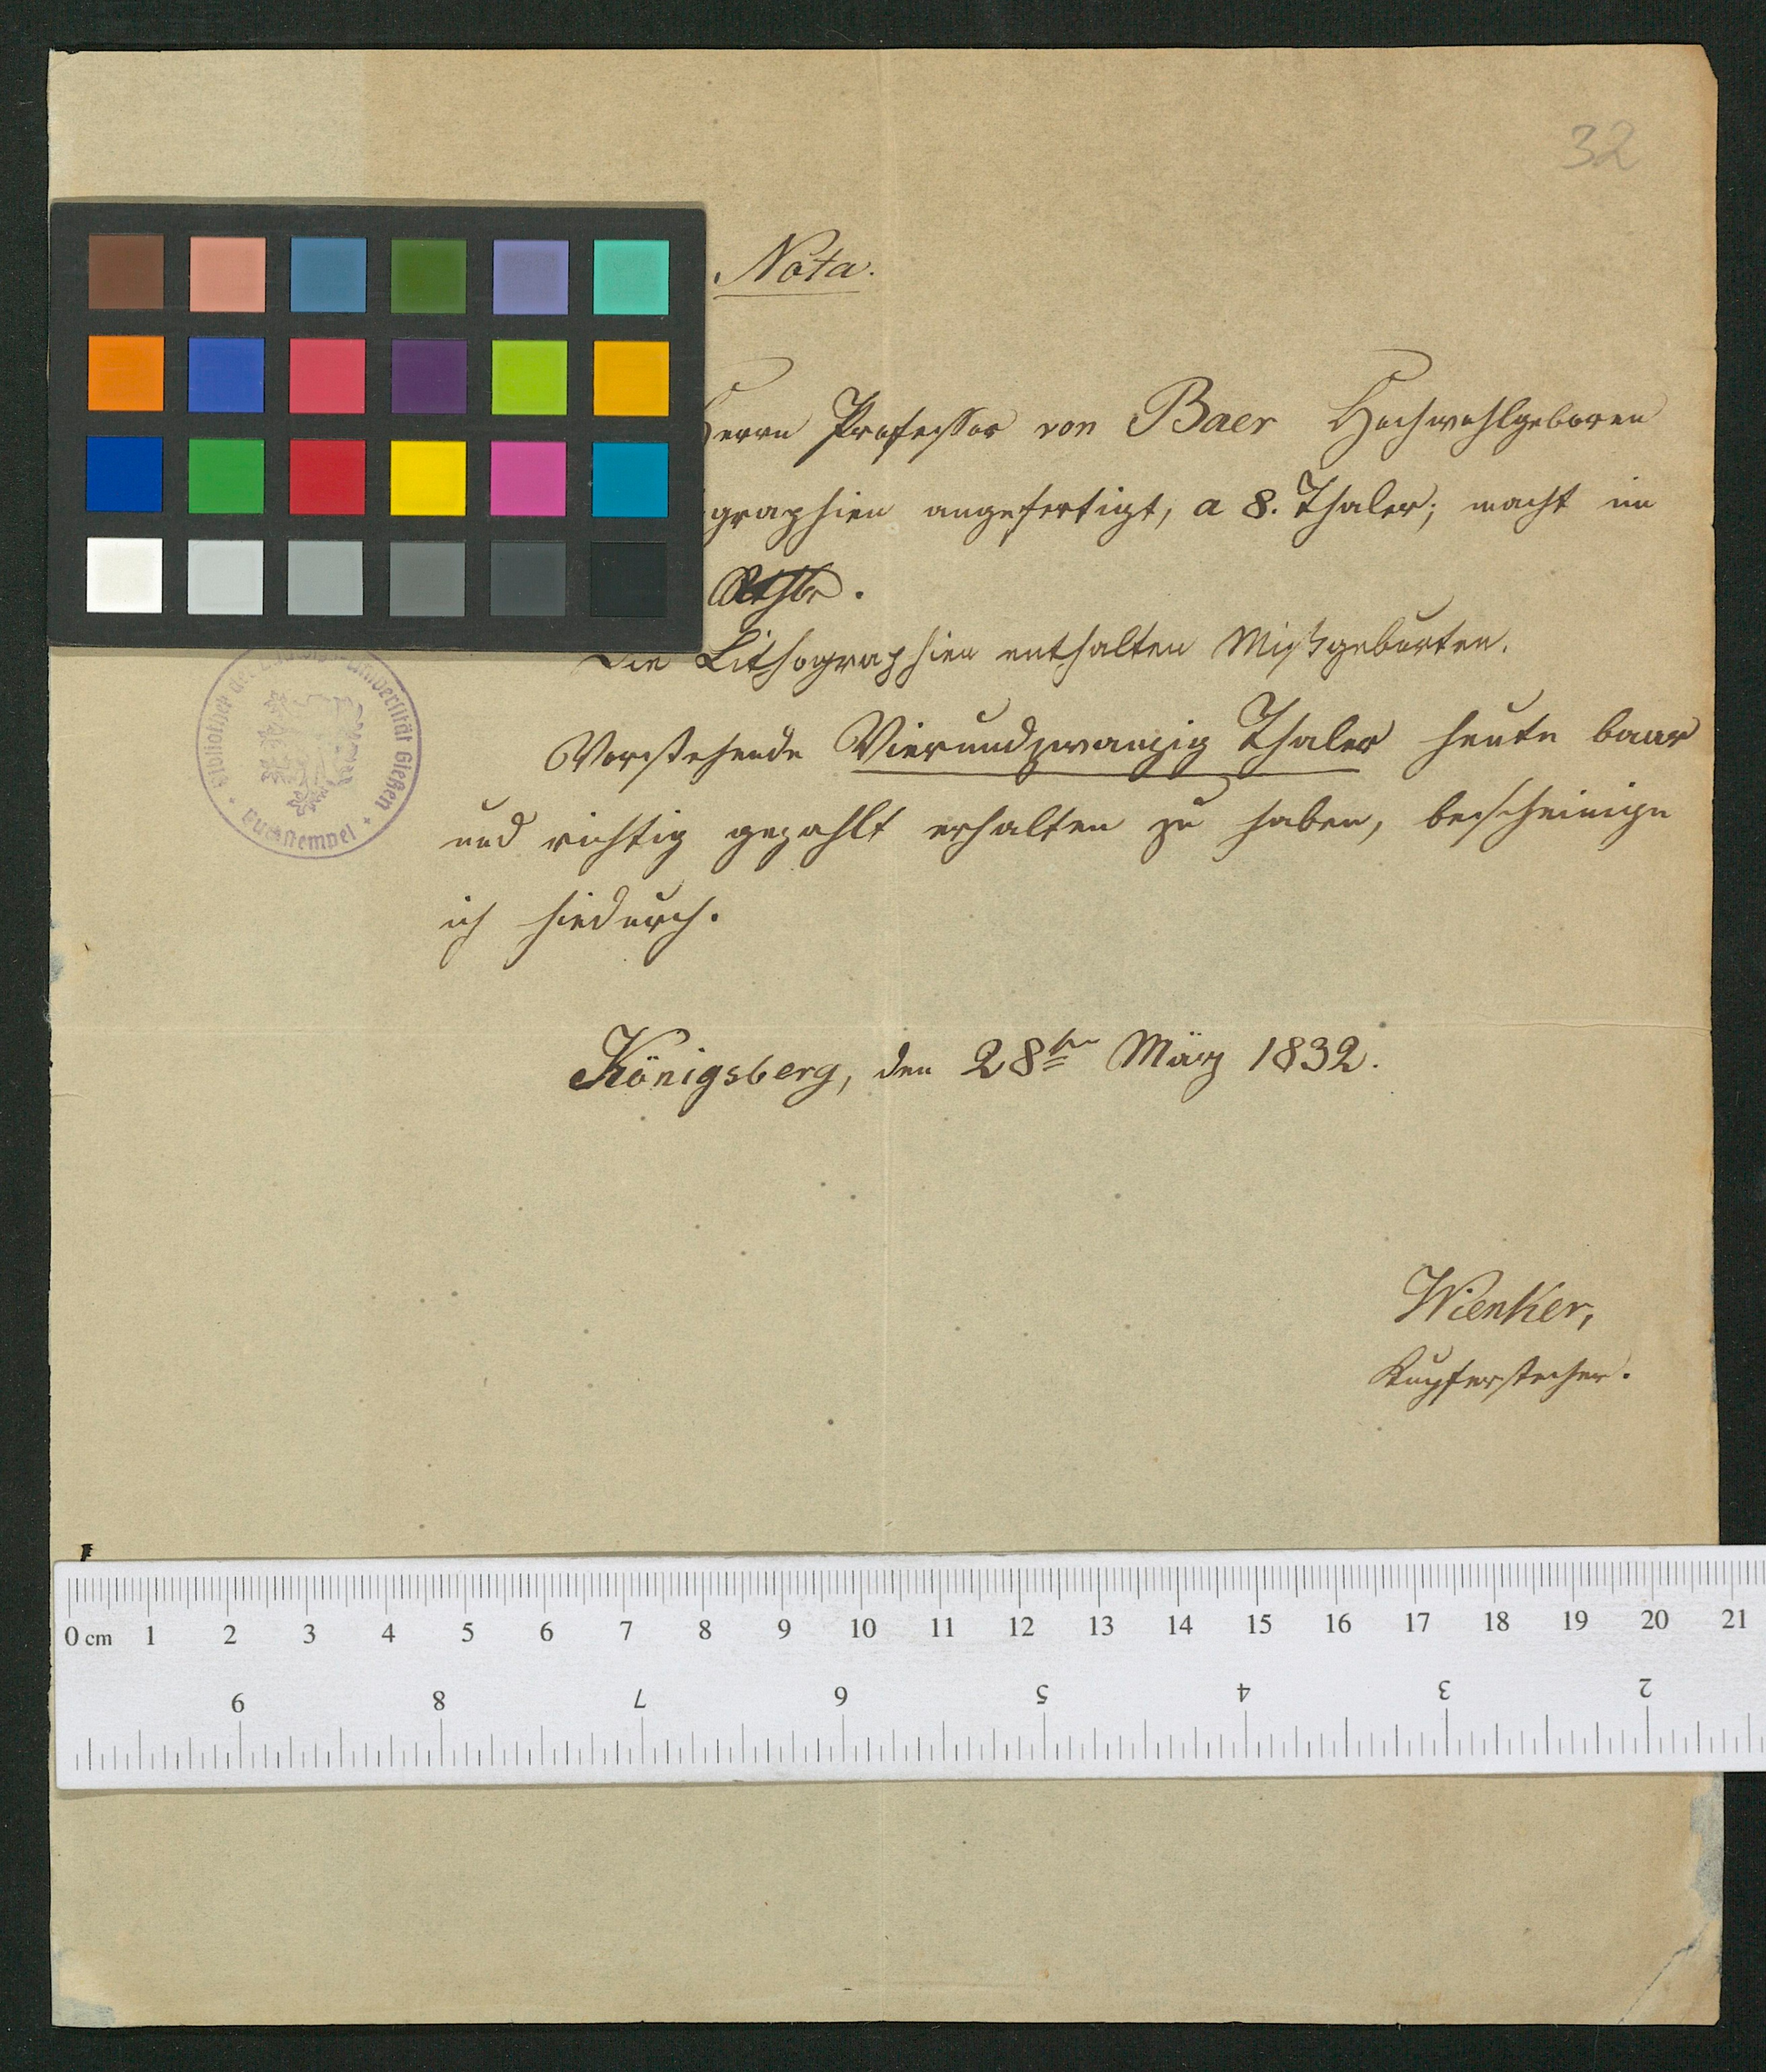 32
Nota.
Herrn Professor von Baer Hochwohlgeboren
graphien angefertigt, a 8. Thaler; macht im
Rthlr.
Die Lithographien enthalten Mißgeburten.
Vorstehende Vierundzwanzig Thaler heute baar
und richtig gezahlt erhalten zu haben, bescheinige
ich hiedurch.
Bibliothek der Universität Gießen
Buchstempel
Königsberg, den 28ten März 1832.
Wienker,
Kupferstecher.
0 cm 1 2 3 4 5 6 7 8 9 10 11 12 13 14 15 16 17 18 19 20 21
9 8 7 6 5 4 3 2